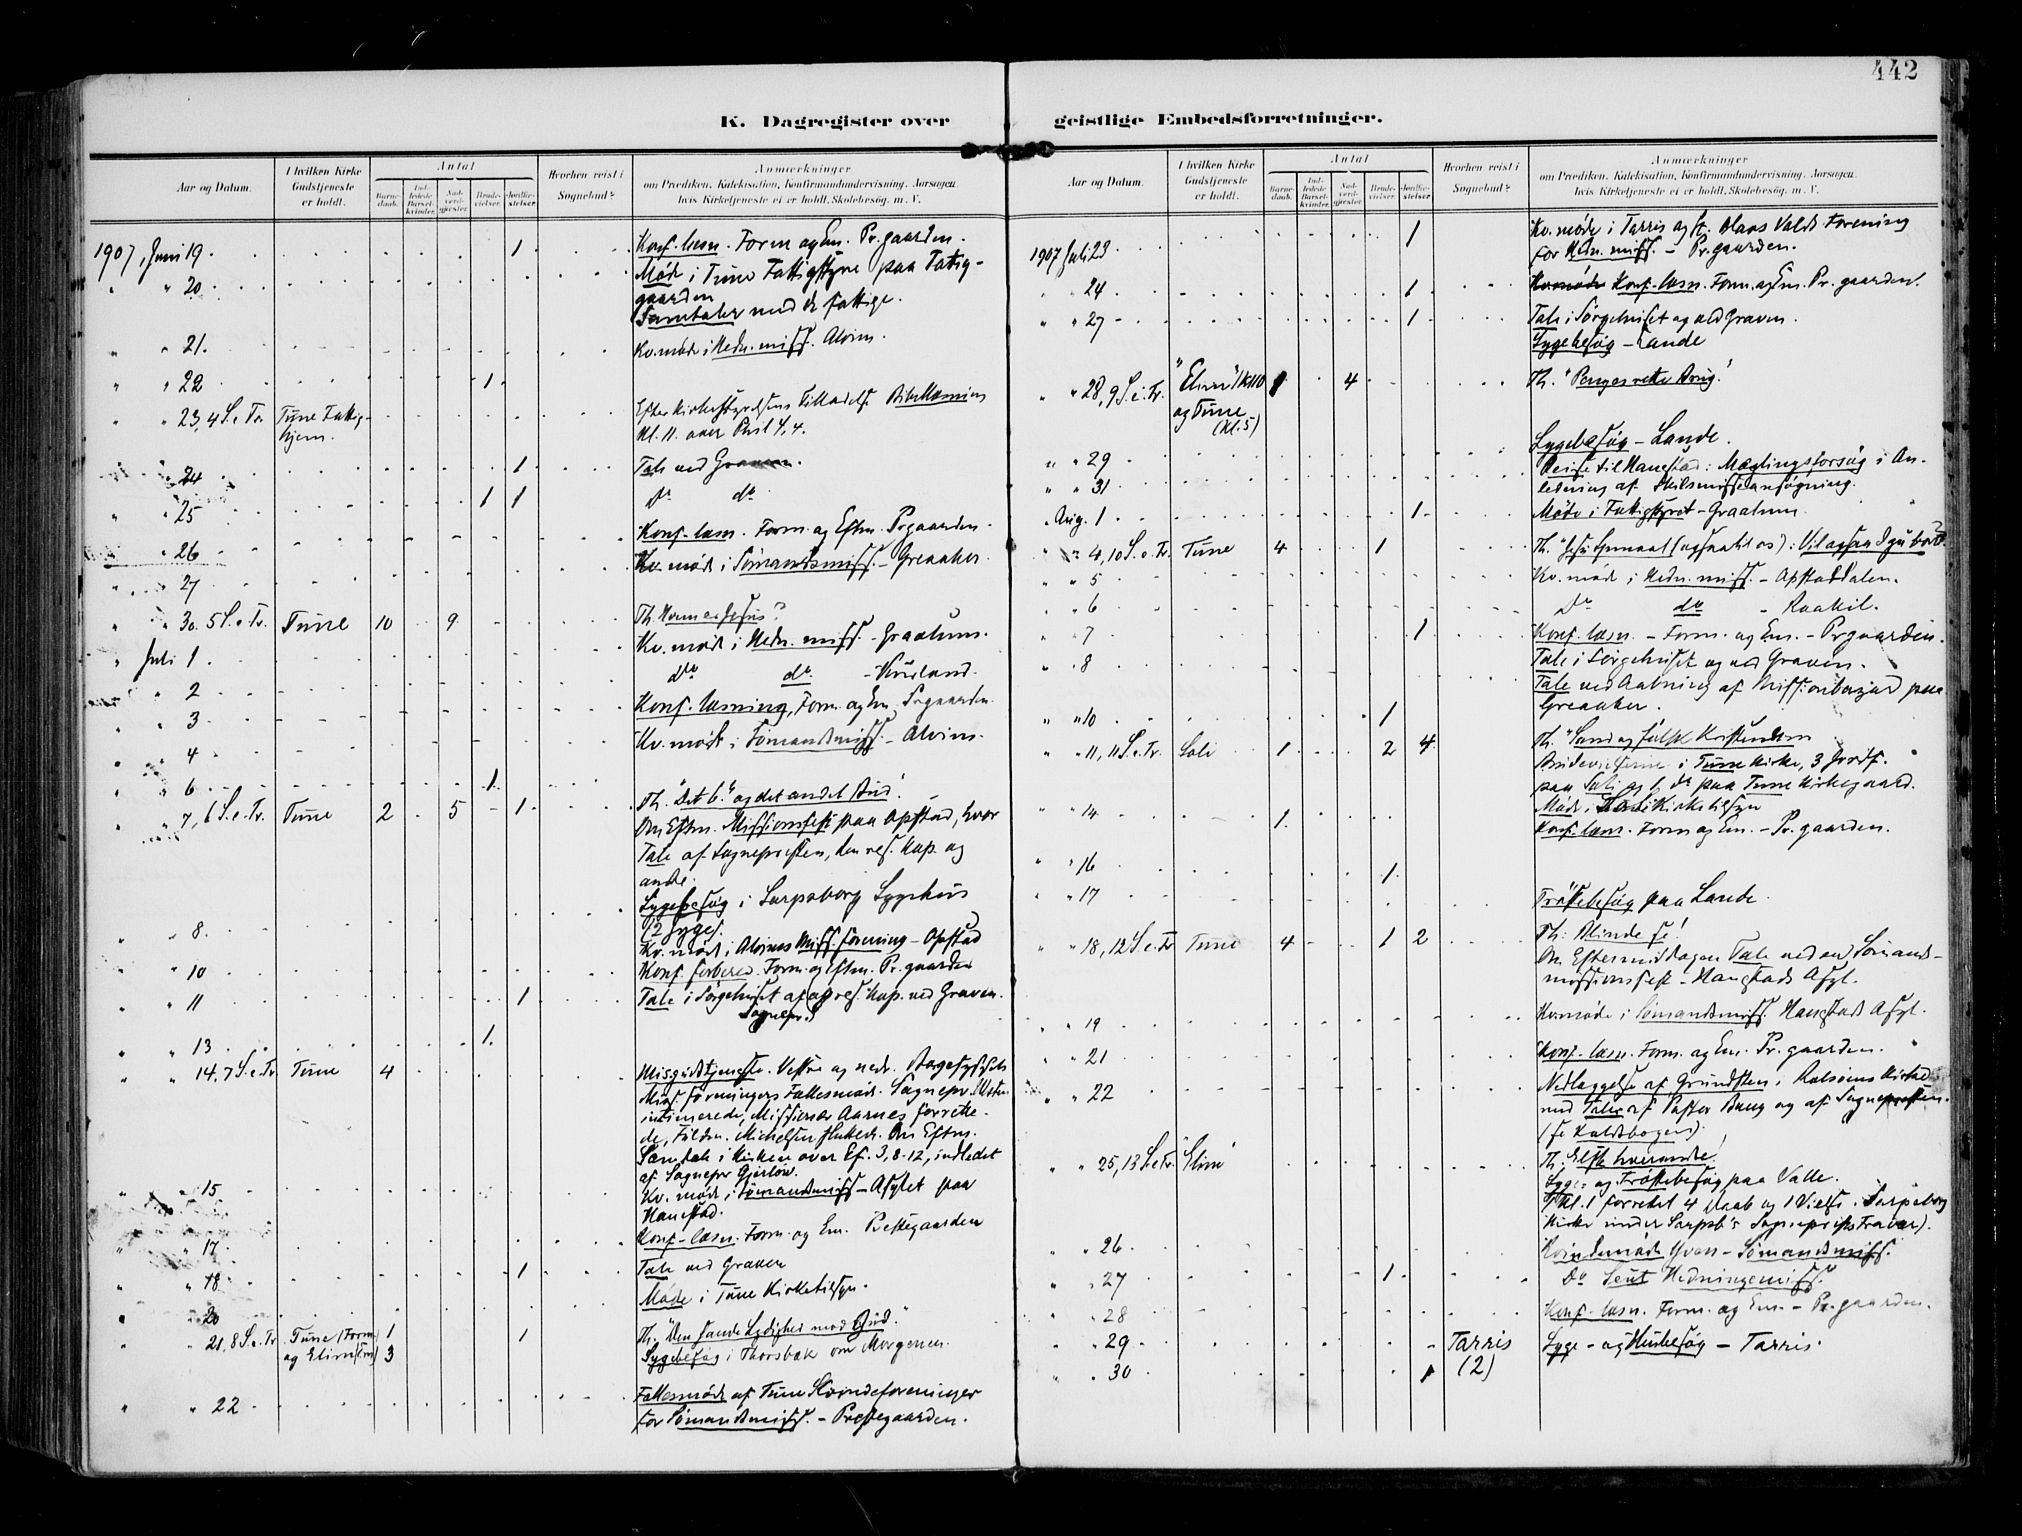 442
K. Dagregister over
geistlige Embedsforretninger.
Aar og Datum.
I hvilken Kirke
Gudstjeneste
er holdt.
Antal
Barne-
daab.
Ind-
ledede
Barsel-
kvinder.
Nad-
verd-
gjæster.
Brude-
vielser.
Jordfæ-
stelser.
Hvorhen reist i
Sognebud?
Anmærkninger
om Prædiken, Katekisation, Konfirmandundervisning, Aarsagen,
hvis Kirketjeneste ei er holdt, Skolebesøg, m. V.
1907, Juni 19 1 Konf. læsn. Form. og Em. Pr.gaarden.
" " 20 Møde i Tune Fattigstyre paa Fattig-
gaarden
Samtaler med de fattige.
" " 21. Kv.møde i Hedn.miss. Alvim.
" " 22 1
" " 23, 4 S. e. Tr. Tune Fattig-
hjem. Efter Kirkestyrelsens Tilladelse
Kl. 11. over Phil 4, 4.
" " 24 1 Tale ved Graven.
" " 25 1 1 Do do
" " 26 Konf. læsn. Form. og Eftm. Prgaarden.
" " 27 Kv. møde i Sømandsmiss. - Greaaker.
" " 30. 5 S. e. Tr. Tune 10 9 Th. Hvem er Jesus?
" Juli 1 Kv. møde i Hedn. miss. - Graalum.
" " 2 Do do - Kurland.
" " 3 Konf. læsning, Form. og Em. Prgaarden.
" " 4 Kv. møde i Sømandsmiss. - Alvim.
" " 6 1
" " 7, 6 S. e. Tr. Tune 2 5 1 Th. "Det 6te og det andet Bud".
Om Eftm. Missionsfest paa Opstad, hvor
Tale af Sognepresten, den res. Kap. og
andre.
" " 8 Sygebesøg i Sarpsborg Sygehus
(2 Syge).
Kv. møde i Alvims Miss. forening - Opstad
" " 10 Konf. forbered. Form. og Eftm. Pr. gaarden
" " 11 1 Tale i Sørgehuset af res. Kap. ved Graven.
Sognepr.
" " 13 1
" " 14, 7 S. e. Tr. Tune 4 Missgudstjeneste. Vestre og nedr. Borgesyssels
Miss. foreningers Fællesmøde. Sognepr.
intimerede, Missionær Aarnes forrette-
de, Om Eftm.
Samtale i Kirken over Ef. 3, 8-12, indledet
af Sognepr Gjerløw.
" " 15 Kv. møde i Sømandsmiss - Asylet paa
Hanestad.
" " 17 Konf-læsn. Form. og Em. Prestegaarden
" " 18 1 Tale ved Graven
" " 20 Møde i Tune Kirketilsyn.
" " 21, 8 S. e. Tr. Tune (Form) 1 1 Th. "Den sande Lydighed mod Gud."
og Elim (Em) 3 Sygebesøg i Thorsbæk om Morgenen.
" " 22 Fællesmøde af Tune Kvindeforeninger
for Sømandsmiss. - Prestegaarden.
Aar og Datum.
I hvilken Kirke
Gudstjeneste
er holdt.
Antal
Barne-
daab.
Ind-
ledede
Barsel-
kvinder.
Nad-
verd-
gjæster.
Brude-
vielser.
Jordfæ-
stelser.
Hvorhen reist i
Sognebud?
Anmærkninger
om Prædiken, Katekisation, Konfirmandundervisning, Aarsagen,
hvis Kirketjeneste ei er holdt, Skolebesøg, m. V.
1907 Juli 23 1 Kv.møde i Tarris og St. Olavs Vold Forening
for Hedn. miss. - Pr.gaarden.
" " 24 1 Konf. læsn. Form. og Em. Pr. gaarden.
" " 27 1 Tale i Sørgehuset og ved Graven.
Sygebesøg - Lande
" " 28, 9 S. e. Tr. "Elim" Kl 10 1 4 Th. "Penges rette Brug".
og Tune
(Kl. 5)
" " 29 Sygebesøg - Lande.
" " 31 Reise til Hanestad: Mæglingsforsøg i An-
ledning af Skilsmisseansøgning.
" Aug. 1 1 Møde i Fattigstyret - Graalum.
" " 4, 10 S. e. Tr. Tune 4 1 Th.
" " 5 Kv. møde i Hedn. miss. - Opstaddalen.
" " 6 Do do - Raakil.
" " 7 1 Konf. læsn. - Form. og Em. - Prgaarden.
" " 8 Tale i Sørgehuset og ved Graven.
Tale ved Aabning af Missionsbazar paa
Greaaker.
" " 10 1
" " 11, 11 S. e. Tr. Soli 1 2 4 Th. "Sand og falsk Kristendom
Brudevielserne i Tune Kirke, 3 Jordf.
paa Soli og 1 do paa Tune Kirkegaard.
Møde i Soli Kirketilsyn
" " 14 1 Konf. læsn. Form og Em. - Pr. gaarden.
" " 16 1
" " 17 Trøstebesøg paa Lande.
" " 18, 12 S. e. Tr Tune 4 1 2 Th: Blinde se!
Om Eftermiddagen Tale ved en Sømands-
missionsfest - Hanestads Asyl.
" " 19 Kv.møde i Sømandsmiss. Hanestad Asyl.
" " 21 Konf-læsn. Form. og Em. Pr. gaarden.
" " 22 Nedlæggelse af Grundsten i Rolsøens Kirke
med Taler af Pastor Bang og af Sognepresten.
(se Kaldsbogen).
" " 25, 13 S. e. Tr. "Elim" Th. Elsk hverandre!
Syge- og Trøstebesøg paa Valle.
(Kl. 1 forrettet 4 Daab og 1 Vielse i Sarpsborg
Kirke under Sarpsb's Sogneprests Fravær).
" " 26 Kvindemøde Yven - Sømandsmiss.
" " 27 1 Do Hedningemiss.
" " 28 Konf-læsn. Form. og Em. - Pr. gaarden.
" " 29 Tarris Syge- og Husbesøg - Tarris.
" " 30 1 (2)